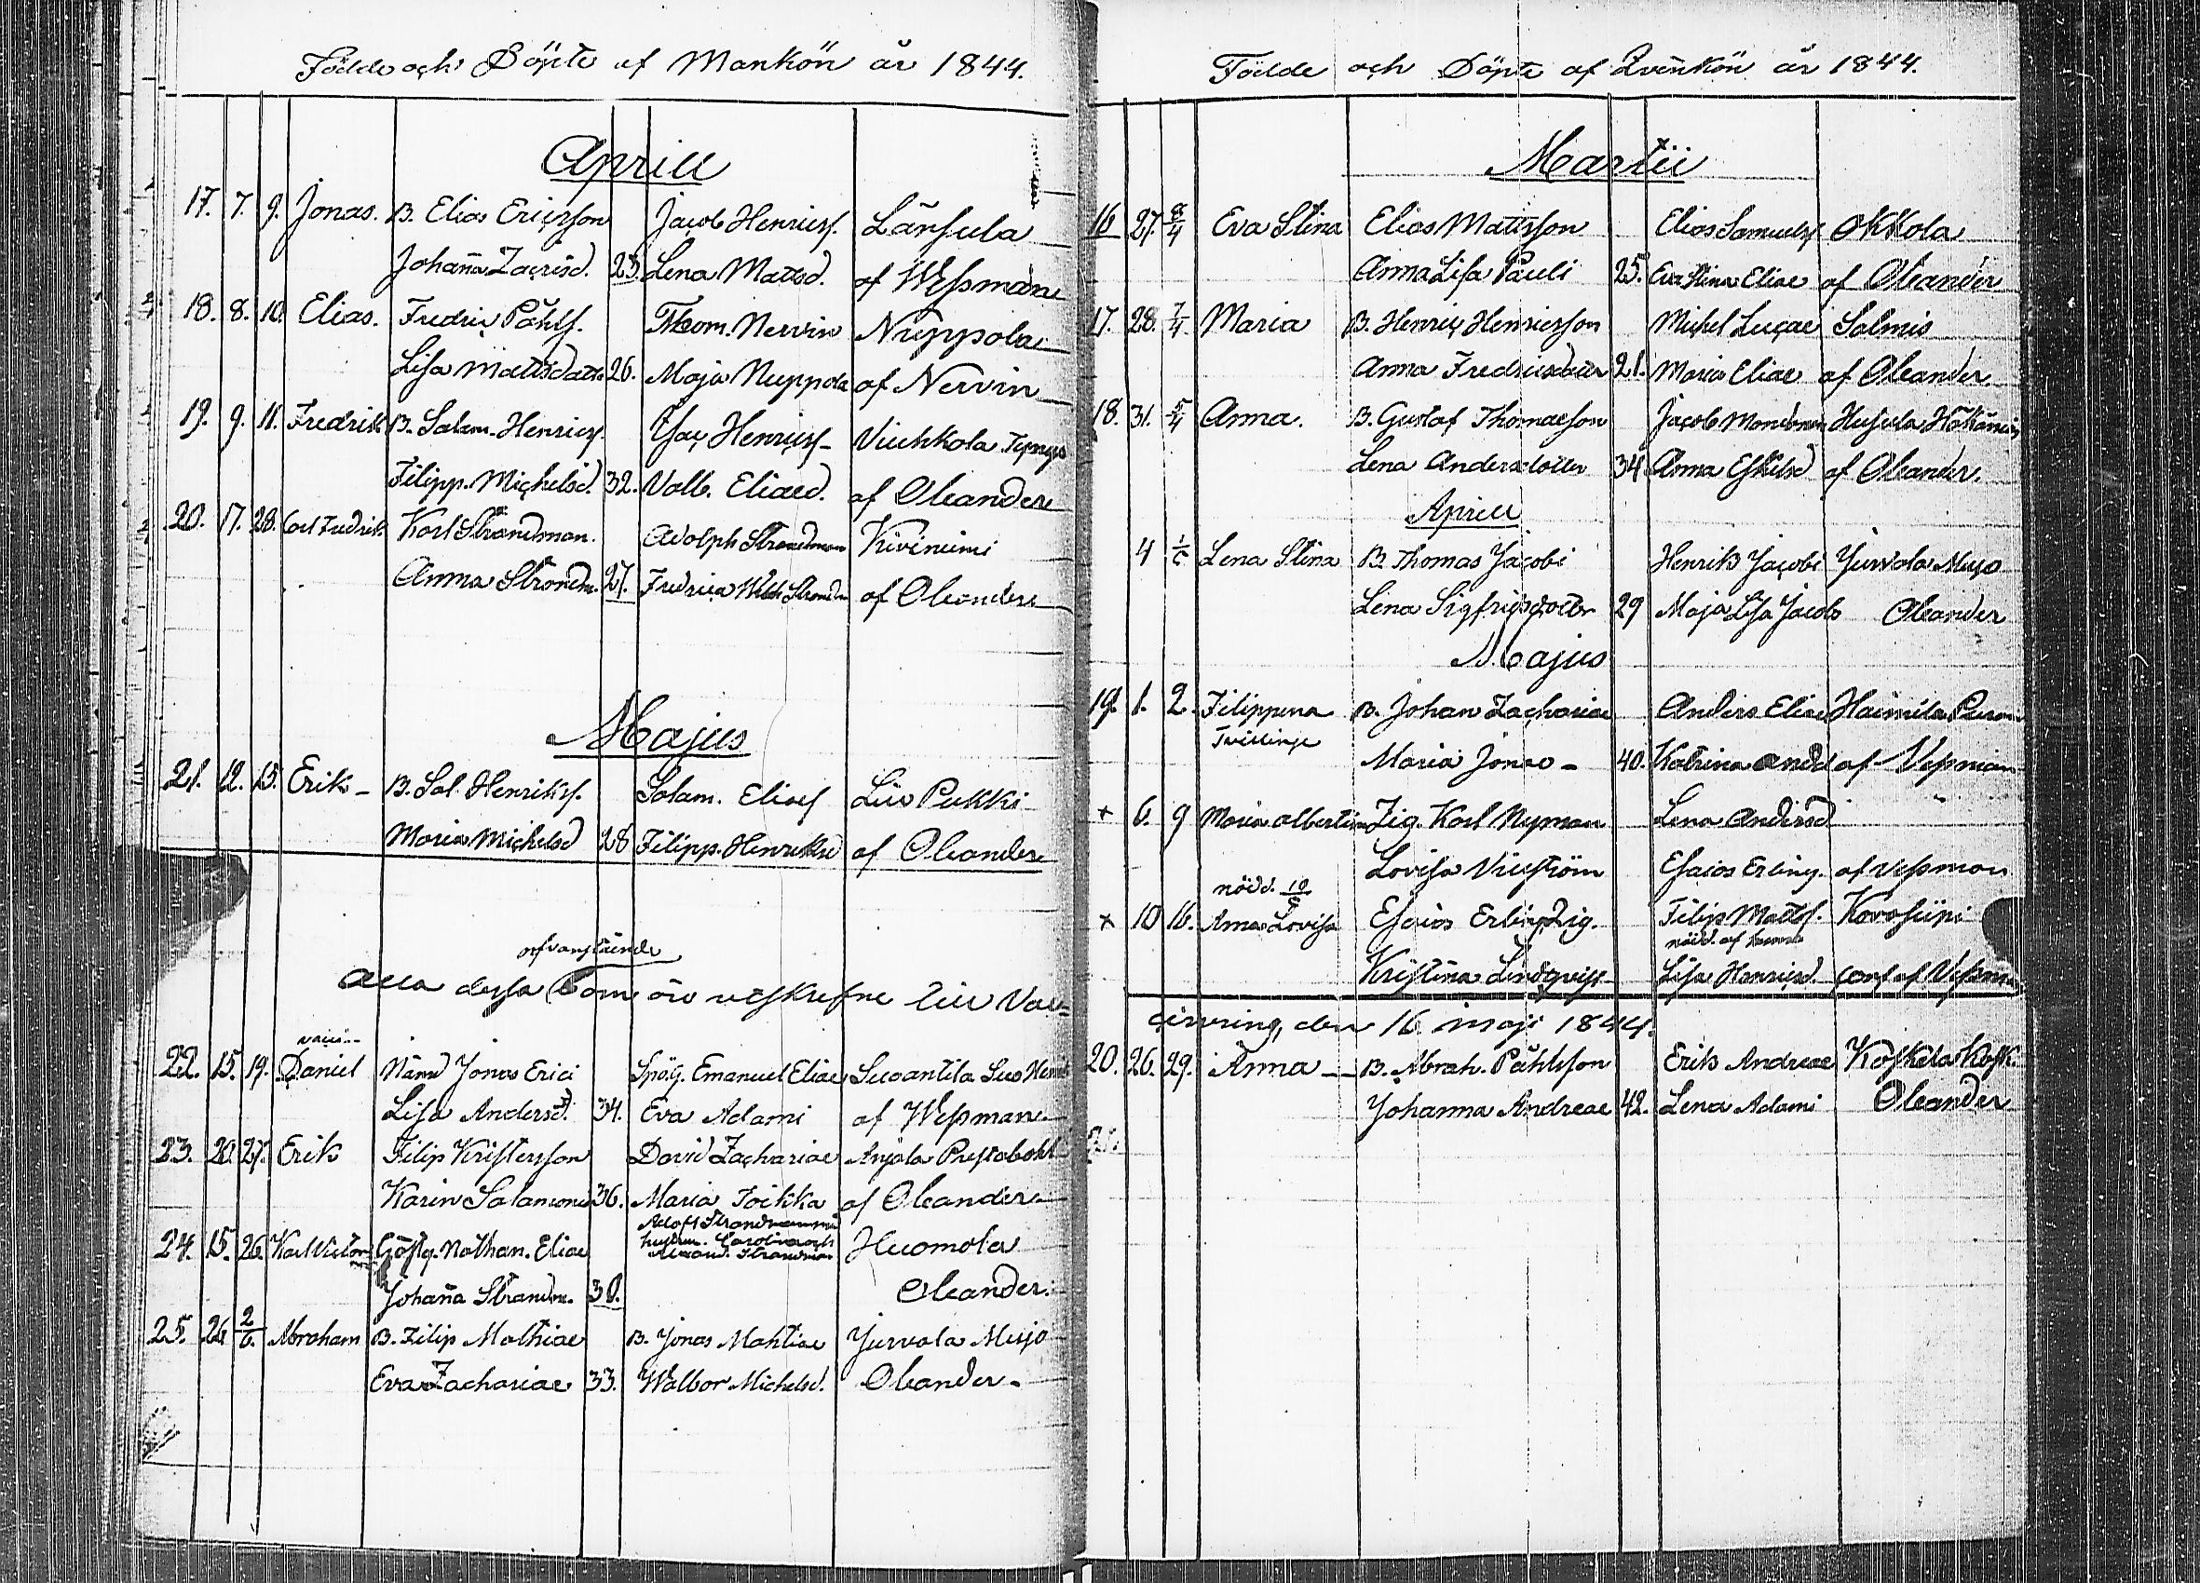 Födde och Döpte af Mankön år 1844.
Aprill
17. 7. 9. Jonas. B. Elias Ericsson Jacob Henricss. Länsula
Johaña Zacrisd. 23. Lena Matsd. of Wessman
18. 8. 10. Elias. Fredric Påhls. Thom. Nervin Nuppola
Lisa Mattsdott. 26. Maja Nuppola af Nervin
19. 9. 11. Fredrik B. Salam. Henricss. Isac Henricss- Viuhkola
Filipp. Michelsd. 32. Valb. Eliaed. af Oleander
20. 17. 28. Carl Fredrik Karl Strandman. Adolph Strandman Kivinimi
Anna Strandm. 27. Fredrica Strandm of Oleander
Majus
21. 12. 15. Erik - B. Sal. Henrikss. Salam. Eliass Lill Pukki
Maria Michelsd 28 Filipp. Henriksd af Oleander
ofvanstående
alla dessa Barn äro utskrefne till Vac=
22. 15. 19. Daniel Nämd Jonas Erici Emanuel Eliae Suoantila
Lisa Andersd. 34. Eva Adami af Wessman
23. 20. 27. Erik Filip Kristersson David Zachariae Anjala Prestabohl
Karin Salamons 36. Maria Toikka af Oleander
24. 15. 26. Karl Victor Gästg. Nathan. Eliae Adolf Strandman Huomola
hustru. Carolina och
Strandman
Johaña Strandm. 30. Oleander.
25. 26 2/6. Abraham B. Filip Mathiae B. Jonas Mahtiae Jurvala Mujo
Eva Zachariae 33. Walbor Michelsd. Oleander.
Födde och Döpte af Qvinkön år 1844.
Martii
16 27. 8/4 Eva Stina Elias Mattsson Elias Samuelss Okkola
Anna Lisa Pauli 25. Eva Stina Eliae af Oleander
17. 28. 7/4. Maria B. Henric Henricsson Michel Lucae Salmis
Anna Fredricsdotter 21. Maria Eliae af Oleander
18. 31. 5/4 Anna. B. Gustaf Thomaeson Jacob Husula
Lena Andersdotter 34 Anna Eskilsd af Oleander.
Aprill
4 Lena Stina B. Thomas Jacobi Henrik Jacobi Jurvala Mujo
Lena Sigfridsdotter 29 Maja Lisa Jacobs Oleander
Majus
19. 1. 2. Filippina B. Johan Zachariae Anders Eliae Haimila
Tvillinge
Maria Jonae - 40. Katrina Andd af Wessman
+ 6. 9 Maria Albertina Zig. Karl Nyman Lena Andersd
Lovisa Esaias Erling. af Wessman
nödd. 10/5
+ 10 16. Anna Lovisa Esaias Erling Zig. Filip Matts. Korosiipi
nödd. af
Kristina Lindqvist Lisa Henricsd. conf. af Wessman
cinering, den 16 maji 1844.
20. 26. 29. Anna -- B. Abrah. Påhlsson Erik Andreae Koskela Kosk.
Johanna Andreae 42. Lena Adami Oleander